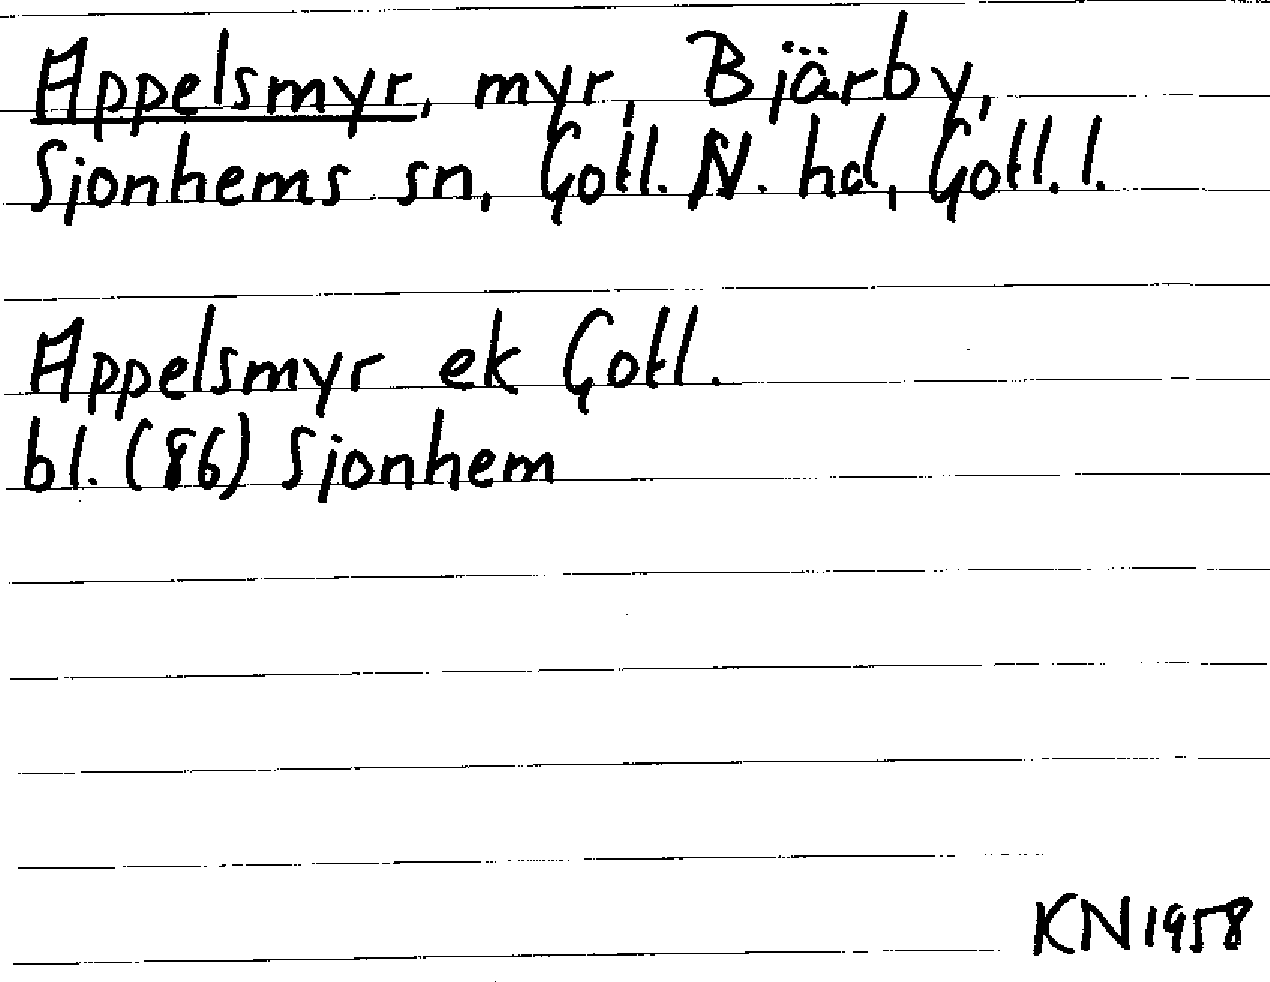 Appelsmyr, myr, Bjärby,
Sjonhems sn, Gotl. N. hd, Gotl. l.
Appelsmyr ek Gotl.
bl. (86) Sjonhem
KN 1958